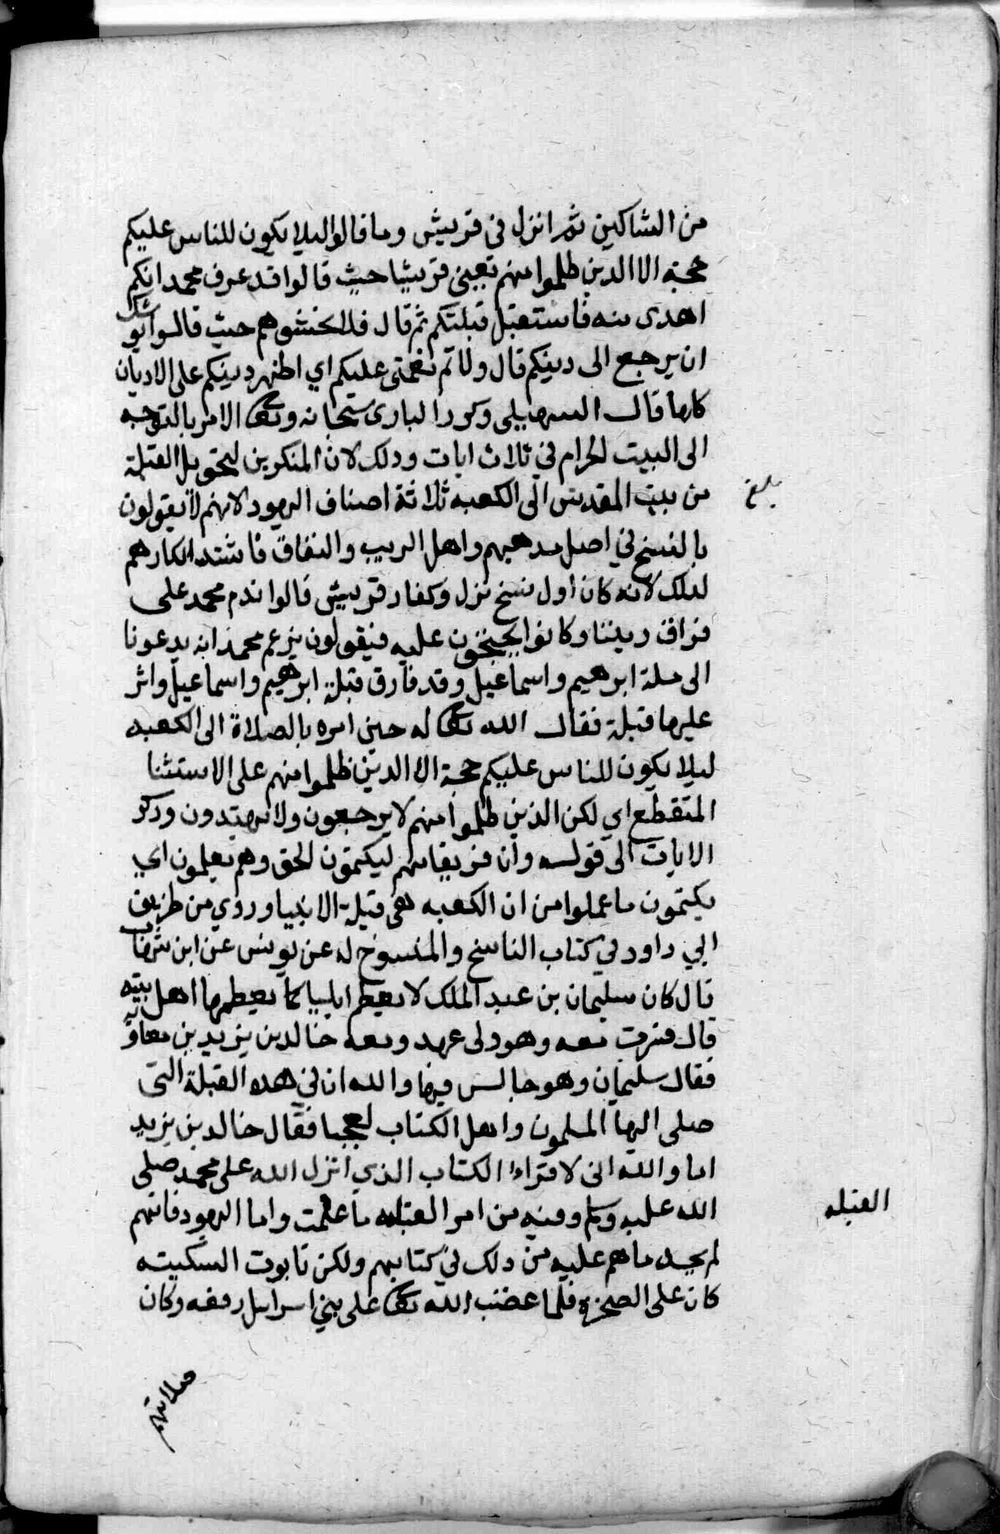 من الشاكين ثم انزل في قريش وما قالوا ليلا يكون للناس عليكم
حجة الا الذين ظلموا منهم يعني قريشا حيث قالوا قد عرف محمد انكم
اهدى منه فاستقبل قبلتكم ثم قال فلا تخشوهم حيث قالوا يوشك
ان يرجع الى دينكم قال ولا تم نعمتي عليكم اي اظهر دينكم على الاديان
كلها قال السهيلي وكرر الباري سبحانه وتعالى الامر بالتوجه
الى البيت الحرام في ثلاث ايات وذلك لان المنكرين لتحويل القبلة
من بيت المقدس الى الكعبه ثلاثة اصناف اليهود لانهم لا يقولون
بالنسخ في اصل مذهبهم واهل الريب والنفاق فاشتد انكارهم
لذلك لانه كان اول نسخ نزل وكفار قريش قالوا ندم محمد على
فراق ديننا وكانوا يحتجون عليه فيقولون يزعم محمد انه يدعونا
الى ملة ابرهيم واسماعيل وقد فارق قبلة ابرهيم واسماعيل واثر
عليها قبلة فقال الله تعالى له حين امره بالصلاة الى الكعبه
ليلا يكون للناس عليكم حجة الا الذين ظلموا منهم على الاستثنا
المنقطع اي لكن الذين ظلموا منهم لا يرجعون ولا يهتدون وذكر
الايات الى قوله وان فريقا منهم ليكتمون الحق وهم يعلمون اي
يكتمون ما علموا من ان الكعبه هي قبلة الانبيا وروي من طريق
ابي داود في كتاب الناسخ والمنسوخ له عن يونس عن ابن شهاب
قال كان سليمان بن عبد الملك لا يعظم ايليا كما يعظمها اهل بيته
قال فسرت معه وهو ولى عهد ومعه خالد بن يزيد بن معاوية
فقال سليمان وهو جالس فيها والله ان في هذه القبلة التى
صلى اليها المسلمون واهل الكتاب لعجبا فقال خالد بن يزيد
اما والله انى لا قراء الكتاب الذي انزل الله على محمد صلى
الله عليه وسلم ومنه من امر القبله ما علمت واما اليهود فانهم
لم يجدوا ما هم عليه من ذلك في كتابهم ولكن تابوت السكينه
كان على الصخرة فلما غضب الله تعالى على بني اسراىل رفعه وكان
صلاتهم
بلغ
القبله